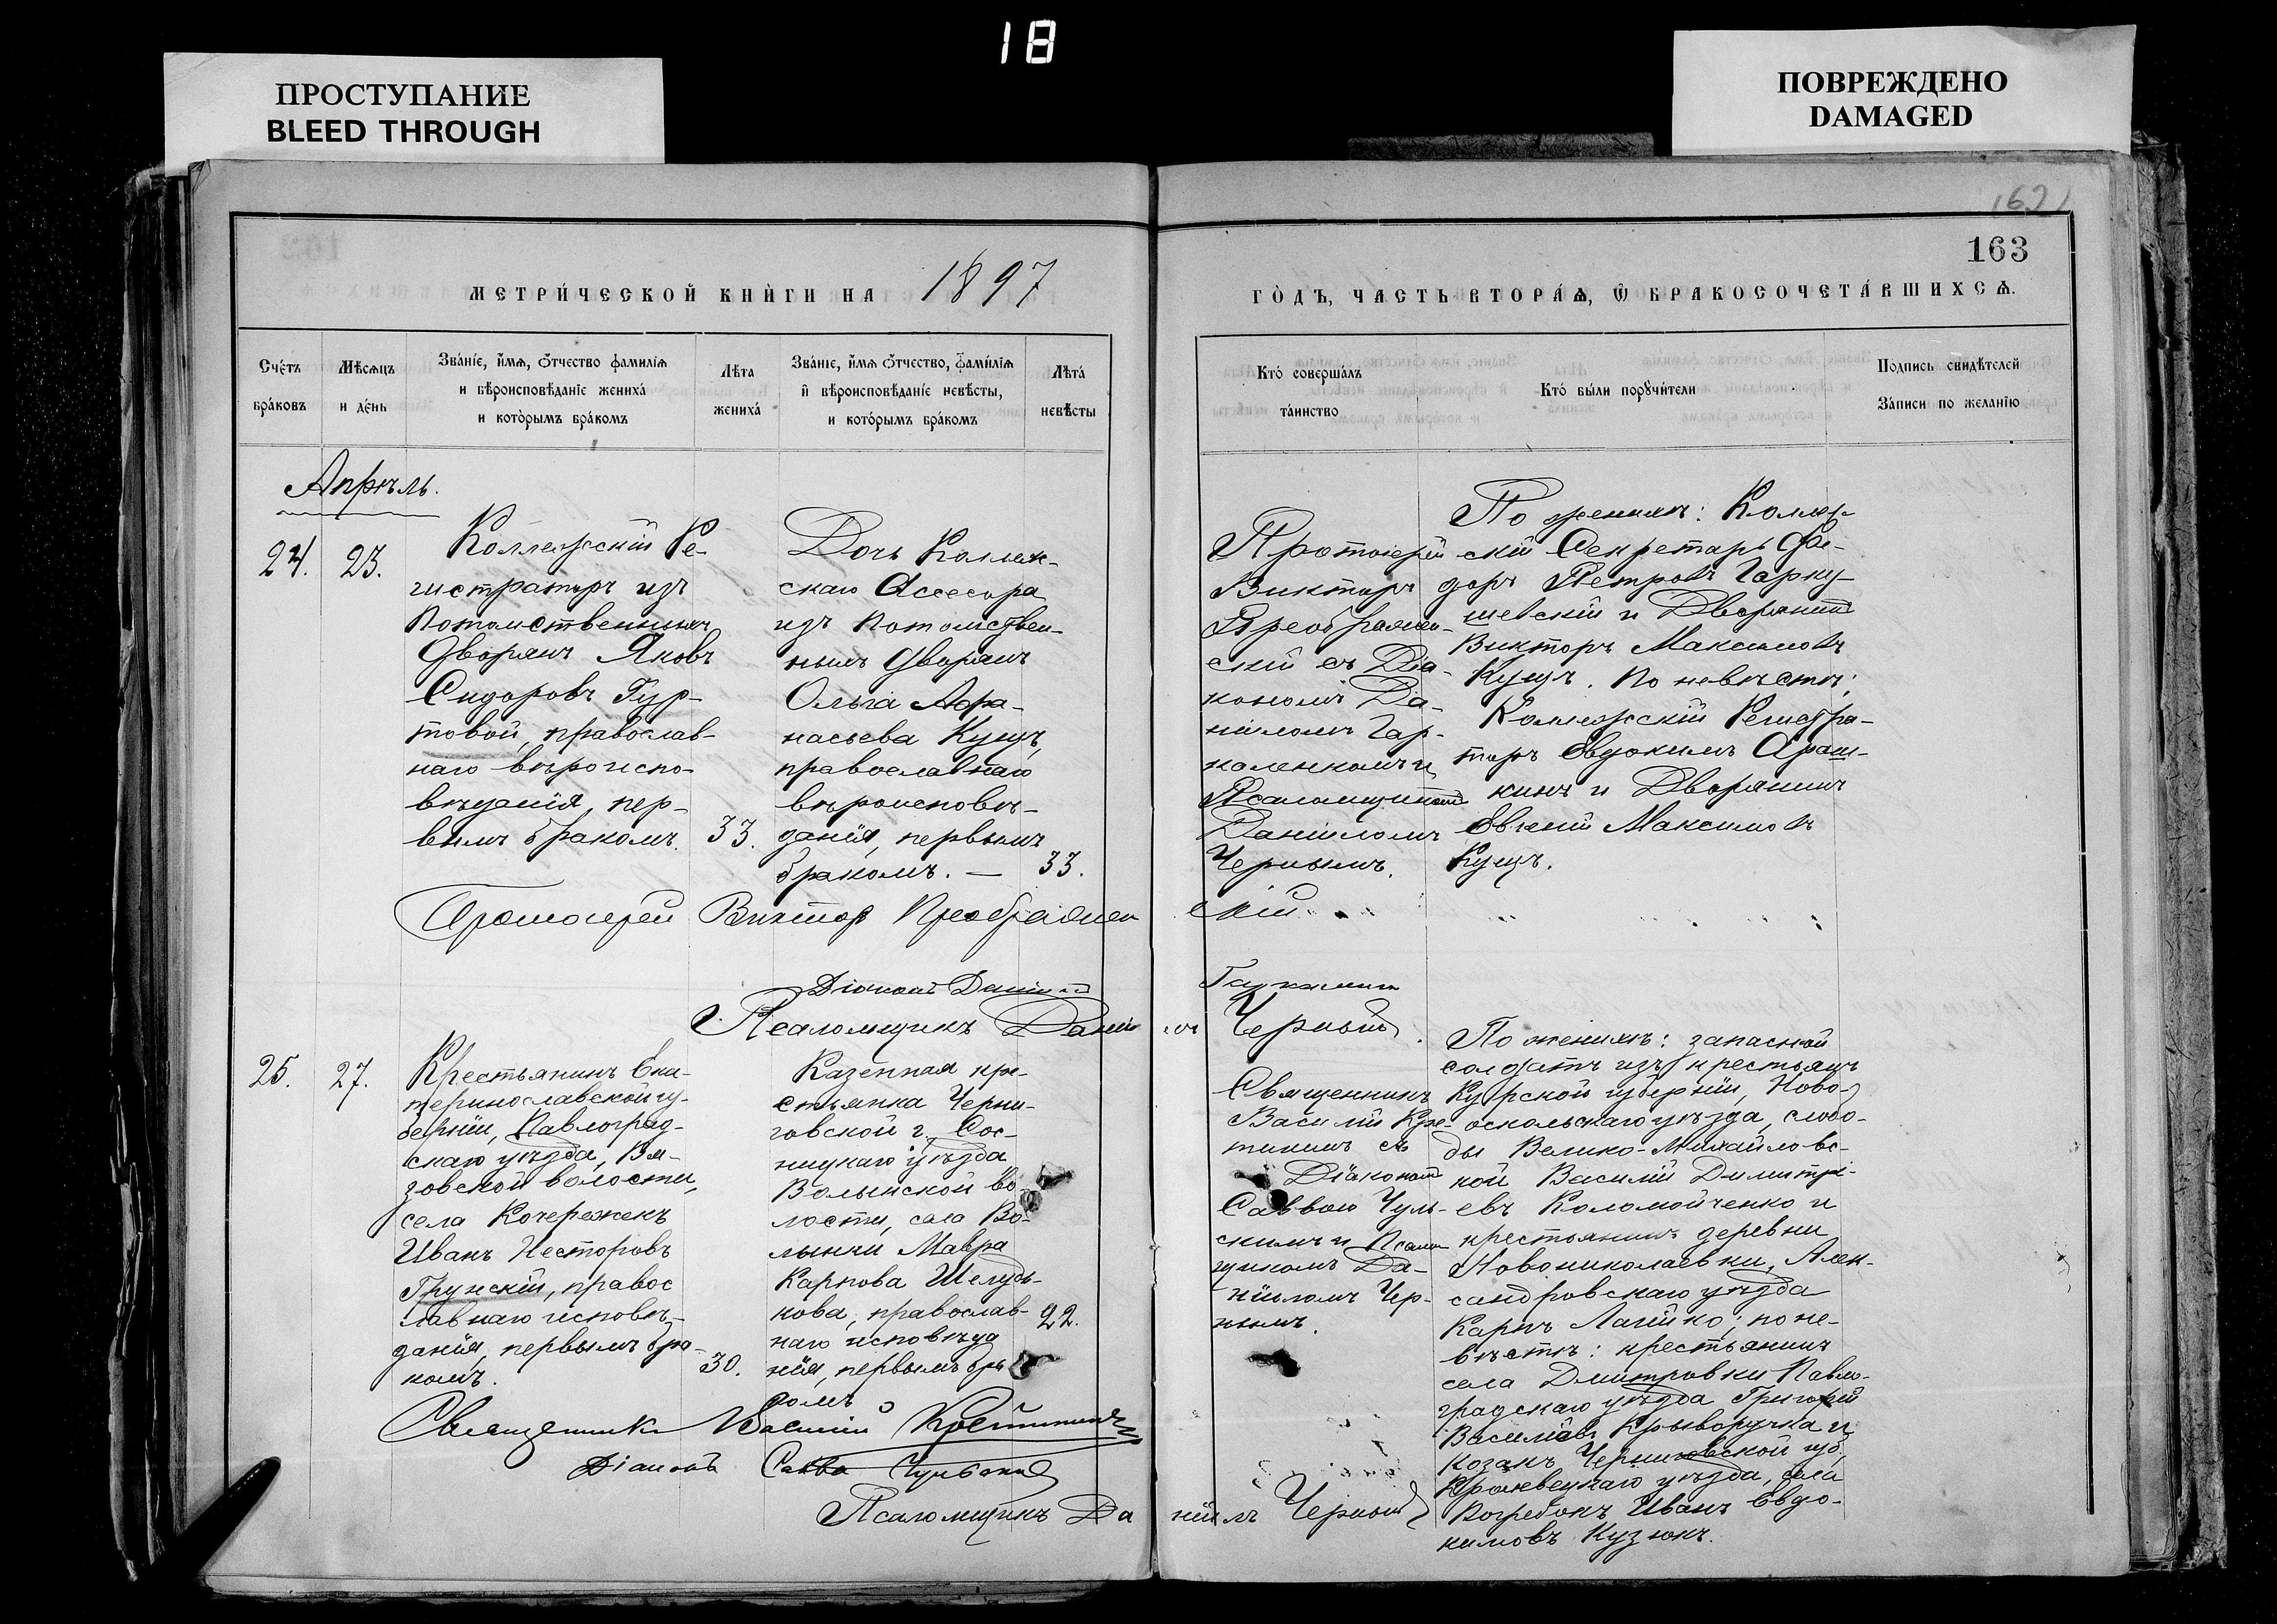 18
ПРОСТУПАНИЕ
BLEED THROUGH
ПОВРЕЖДЕНО
DAMAGED
163
МЕТРИ́ЧЕСКОЙ КНИ́ГИ НА 1897
ГО́ДЪ, ЧАСТЬ ВТОРА́Ѧ, Ѽ БРАКОСОЧЕТА́ВШИХСѦ.
Сче́тъ
бра́ковъ
Мѣ́сѧцъ
и де́нь
Зва́нїе, и́мѧ, ѻ́тчество фамилїѧ
и вѣроисповѣ́данїе жениха́
и кото́рымъ бра́комъ
Лѣ́та
жениха́
Зва́нїе, и́мѧ ѻ́тчество, фами́лїѧ
и вѣроисповѣ́данїе невѣ́сты,
и кото́рымъ бра́комъ
Лѣта́
невѣ́сты
Кто́ соверша́лъ
та́инство
Кто́ бы́ли порꙋчи́тели
Подпись свидѣ́телей
За́писи по жела́нїю
Апрѣль.
24.
23.
Коллежскій Ре-
гистраторъ изъ
потомственныхъ
Дворянъ Яковъ
Сидоровъ Гур-
товой, православ-
наго вѣроиспо-
вѣданія, пер-
вымъ бракомъ.
33.
Дочь Коллеж-
скаго Ассесора
изъ потомствен-
ныхъ Дворянъ
Ольга Афа-
насьева Кущъ,
православнаго
вѣроисповѣ-
данія, первымъ
бракомъ. —
33.
Протоіерей
Викторъ
Преображен-
скій съ Діа-
кономъ Да-
ніиломъ Гар-
каленкомъ и
Псаломщикомъ
Даніиломъ
Чернымъ.
По женихѣ: Коллеж-
скій Секретарь Фе-
доръ Петровъ Гарку-
шевскій и Дворянинъ
Викторъ Максимовъ
Кущъ. По невѣстѣ:
Коллежскій Регистра-
торъ Евдокимъ
кинъ и Дворянинъ
Евгеній Максимовъ
Кущъ.
Протоіерей Викторъ Преображен скій
Діаконъ Даніилъ
Псаломщикъ Даніилъ Черный
25.
27.
Крестьянинъ Ека-
теринославской гу-
берніи, Павлоград-
скаго уѣзда, Вя-
зовской волости,
села Кочережекъ
Иванъ Несторовъ
Грунскій, правос
лавнаго исповѣ-
данія, первымъ бра-
комъ.
30.
Казенная кре-
стьянка Черни-
говской г. Сос-
ницкаго уѣзда
Волынской во-
лости, села Во-
лынки Мавра
Карпова Шелудь-
кова, православ-
наго исповѣда
нія, первымъ бра
комъ
22.
Священникъ
Василій Кре-
тининъ съ
Діакономъ
Саввою Чуль-
скимъ и Псалом
щикомъ Да-
ніиломъ Чер-
нымъ.
По женихѣ: запасной
солдатъ изъ крестьянъ
Курской губерніи, Ново-
оскольскаго уѣзда, слобо-
ды Велико-Михайловс-
кой Василій Димитрі-
евъ Коломойченко и
крестьянинъ деревни
Новониколаевки, Алек-
сандровскаго уѣзда
Карпъ Лапйко; по не-
вѣстѣ: крестьянинъ
села Дмитровки Павло-
градскаго уѣзда Григорій
Васильевъ Крыворучка и
козакъ Черниговской губ.
Кролевецкаго уѣзда, села
Погребокъ Иванъ Евдо-
кимовъ Кузюкъ.
Священникъ Василій
Діаконъ Савва
Псаломщикъ Да ніилъ Черный